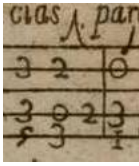 cias, par
3 2 0
3 0 2 3
5 3 1